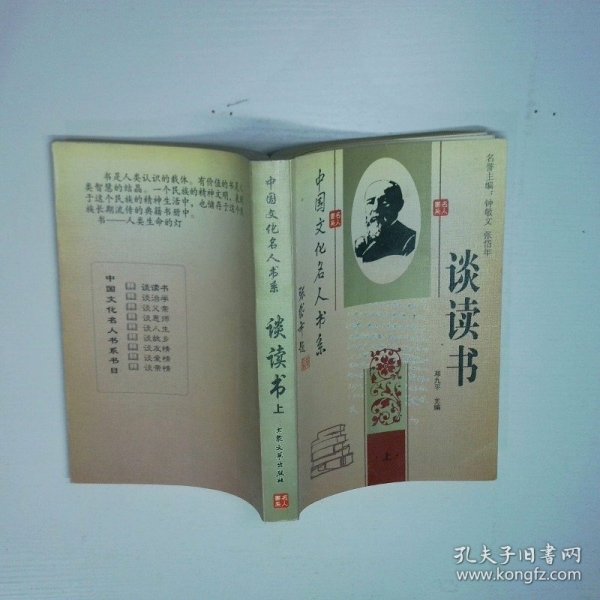 书是人类认识的载体。有价值的书是人
类智慧的结晶。一个民族的精神文明,
于这个民族的精神生活中,也储存于这个
族长期流传的典籍书册中。
书——人类生命的灯
中国文化名人书系书目
谈读书
谈治学
谈父亲
谈恩师
谈人生
谈故乡
谈友情
谈爱情
谈亲情
中国文化名人书系
谈读书
上
大众文艺出版社
名人书系
中国文化名人书系
张岱年 题
名人书系
名人书系
名誉主编:钟敬文 张岱年
谈读书
邓九平 主编
上
孔夫子旧书网
www.kongfz.com